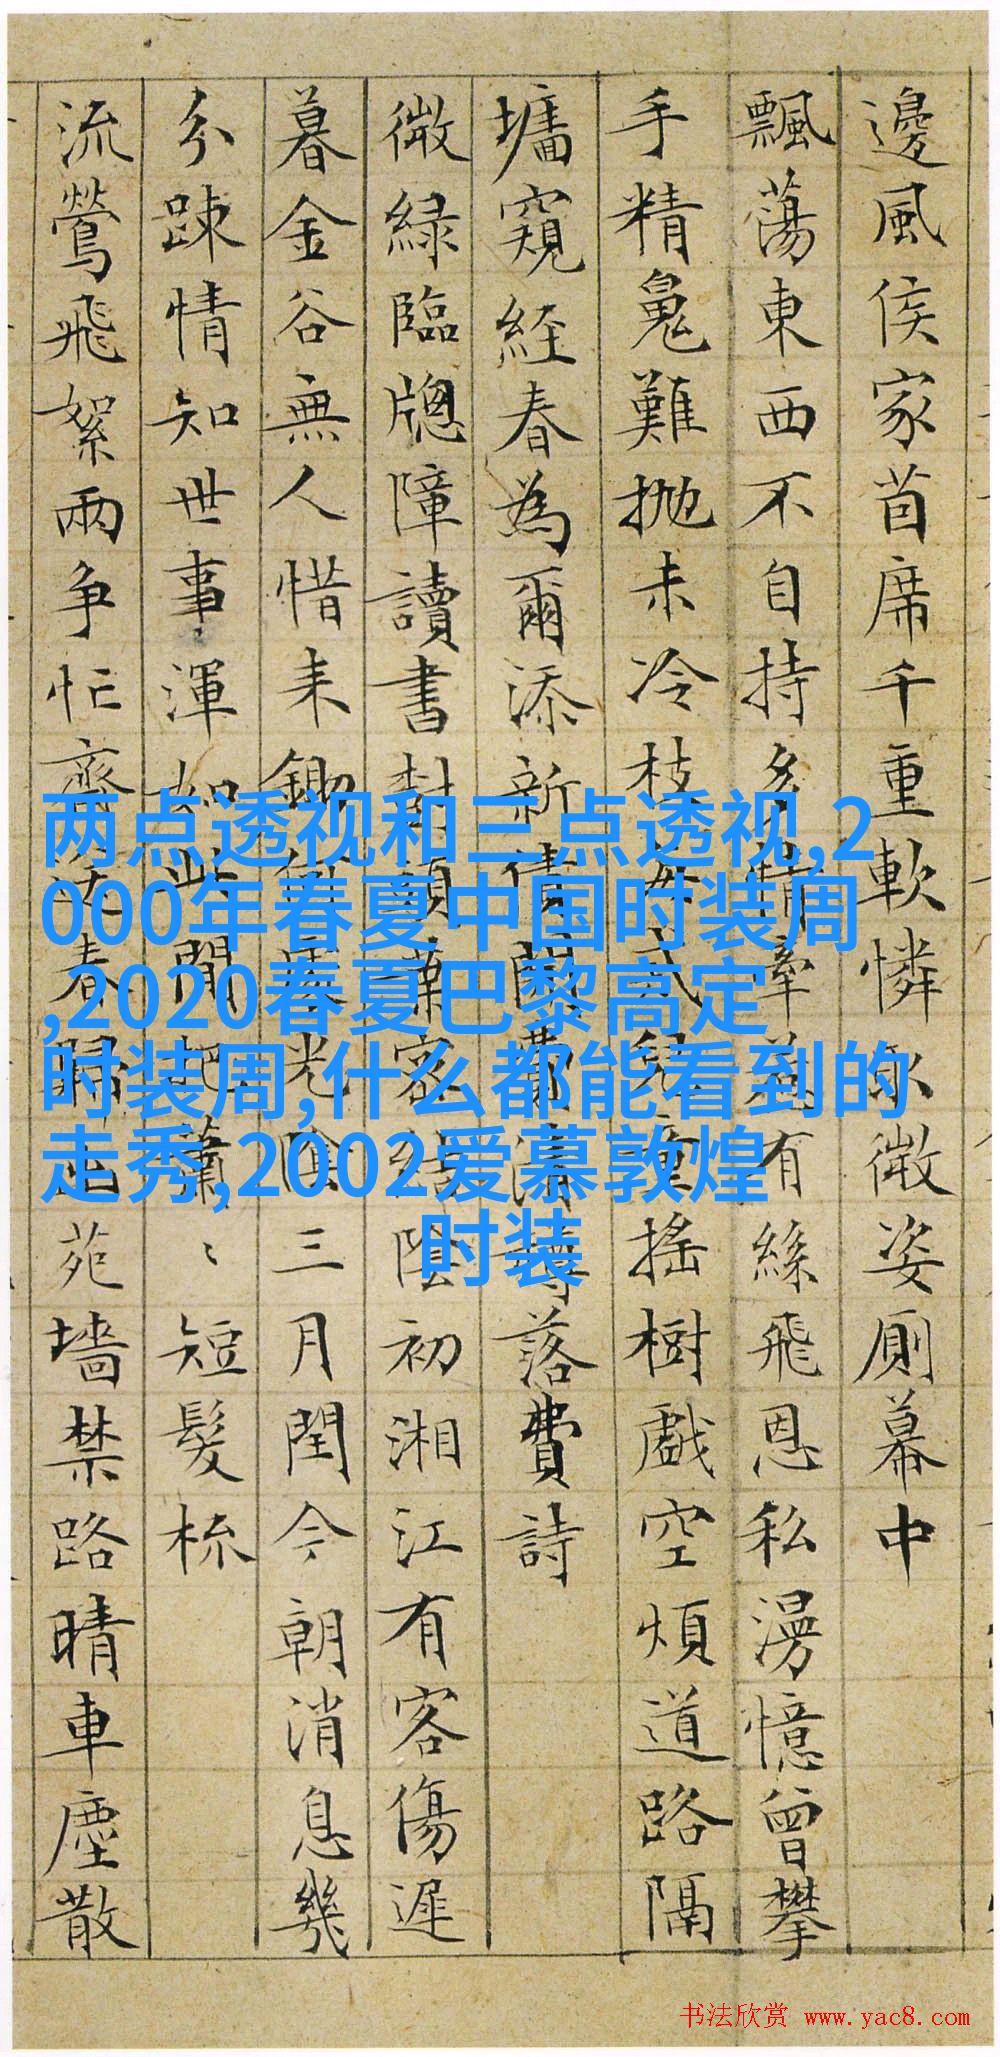 邊風侯家茵席千重軟憐微姿厠幕中
飄蕩東西不自持多情牽惹有絲飛恩私漫憶曾攀
手精䰟難抛未冷枝每兒童搖樹戲空煩道路隔
墉窺經春為爾添新債清落費詩
微緑臨牕障讀書對葉密結陰初湘江有客傷遲
暮金谷無人惜耒鋤光陰三月閏今朝消息幾
分踈情知世事渾如此閒把蕭〻短髮梳
流鶯飛絮兩爭忙齊送春歸出苑墻禁路晴車塵散
两点透视和三点透视,2
000年春夏中国时装周
,2020春夏巴黎高定
时装周,什么都能看到的
走秀,2002爱慕敦煌
时装
书法欣赏 www.yac8.com